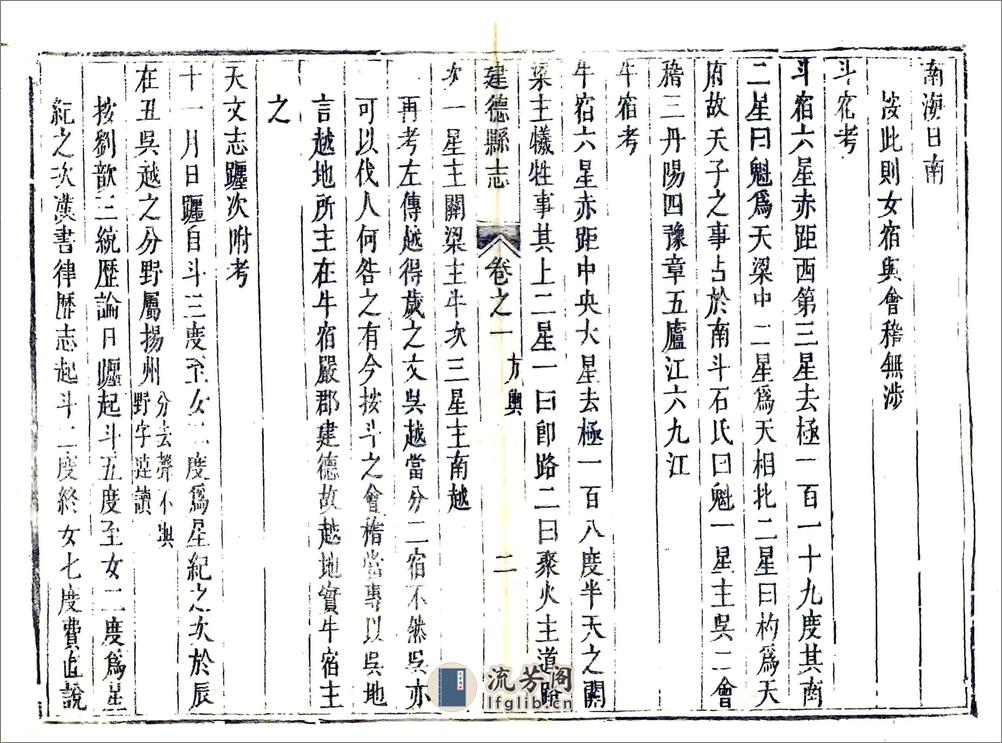 南海日南
按此則女宿與會稽無涉
斗宿考
斗宿六星赤距西第三星去極一百一十九度其南
二星曰魁爲天梁中二星爲天相北二星曰杓爲天
府故天子之事占於南斗石氏曰魁一星主吳二會
稽三丹陽四豫章五廬江六九江
牛宿考
牛宿六星赤距中央大星去極一百八度半天之關
梁主犧牲事其上二星一曰卽路二曰聚火主道路
次一星主關梁主牛次三星主南越
建德縣志 卷之一 方輿 二
再考左傳越得歲之文吳越當分二宿不然吳亦
可以伐人何咎之有今按斗之會稽當專以吳地
言越地所主在牛宿嚴郡建德故越地實牛宿主
之
天文志躔次附考
十一月日躔自斗三度至女二度爲星紀之次於辰
在丑吳越之分野屬揚州分去聲不與野字連讀
按劉歆三統歷論日躔起斗五度至女二度爲星
紀之次漢書律歷志起斗二度終女七度費直說
流芳阁
lfglib.com